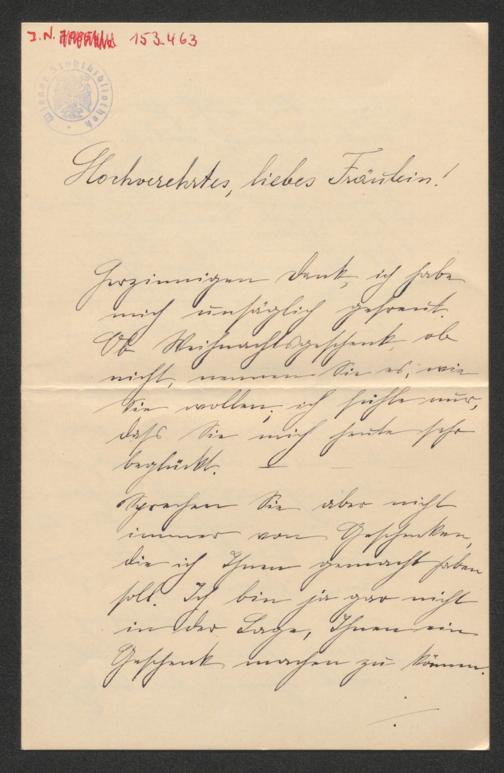 J. N. 153.463
Wiener Stadtbibliothek
Hochverehrtes, liebes Fräulein!
Herzinnigen Dank, ich habe
mich unsäglich gefreut.
Ob Weihnachtsgeschenk ob
nicht, nennen Sie es, wie
Sie wollen; ich fühle nur,
daß Sie mich heute sehr
beglückt. –
Sprechen Sie aber nicht
immer von Geschenken,
die ich Ihnen gemacht haben
soll. Ich bin ja gar nicht
in der Lage, Ihnen ein
Geschenk machen zu können.